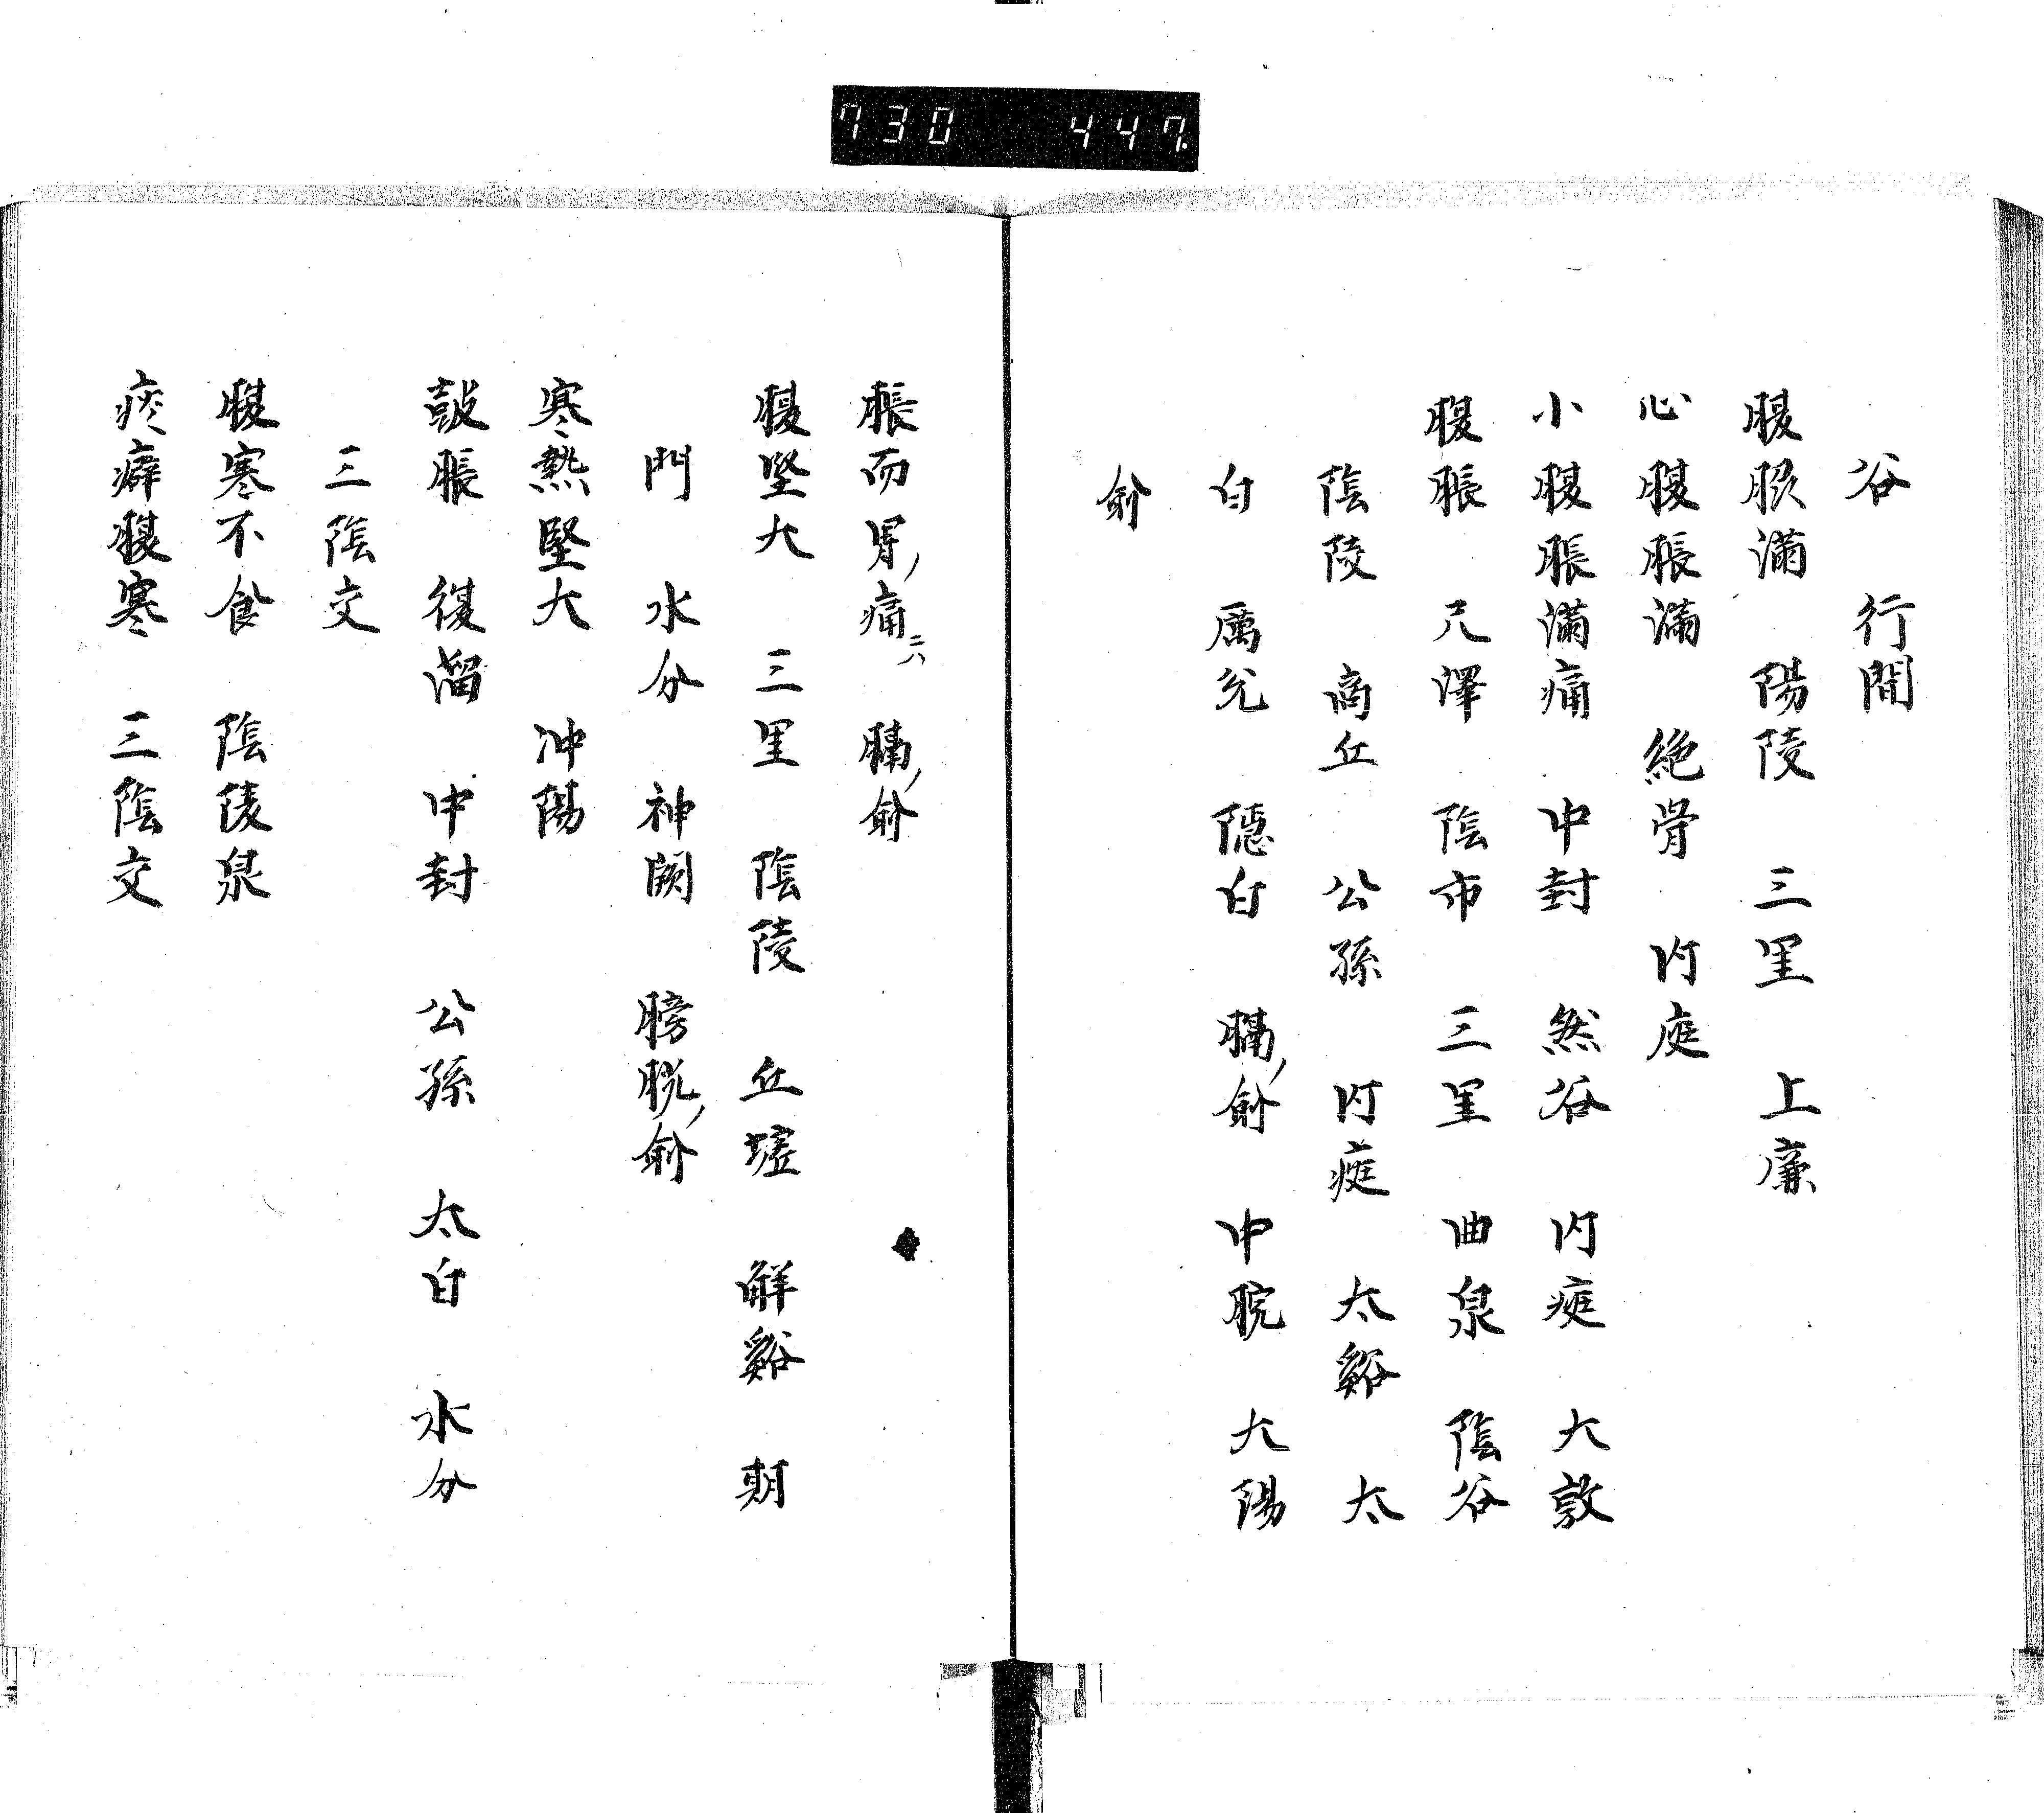 730 447
谷 行間
腹脹滿 陽陵 三里 上廉
心腹脹滿 絶骨 内庭
小腹脹滿痛 中封 然谷 内庭 大敦
腹脹 尺澤 陰市 三里 曲泉 陰谷
陰陵 商丘 公孫 内庭 太谿 太
白 厲兌 隱白 膈俞 中脘 大陽
俞
脹而胃痛 膈俞
腹堅大 三里 陰陵 丘墟 解谿 期
門 水分 神闕 膀胱俞
寒熱堅大 冲陽
皷脹 復溜 中封 公孫 太白 水分
三陰交
腹寒不食 陰陵泉
痰癖腹寒 三陰交